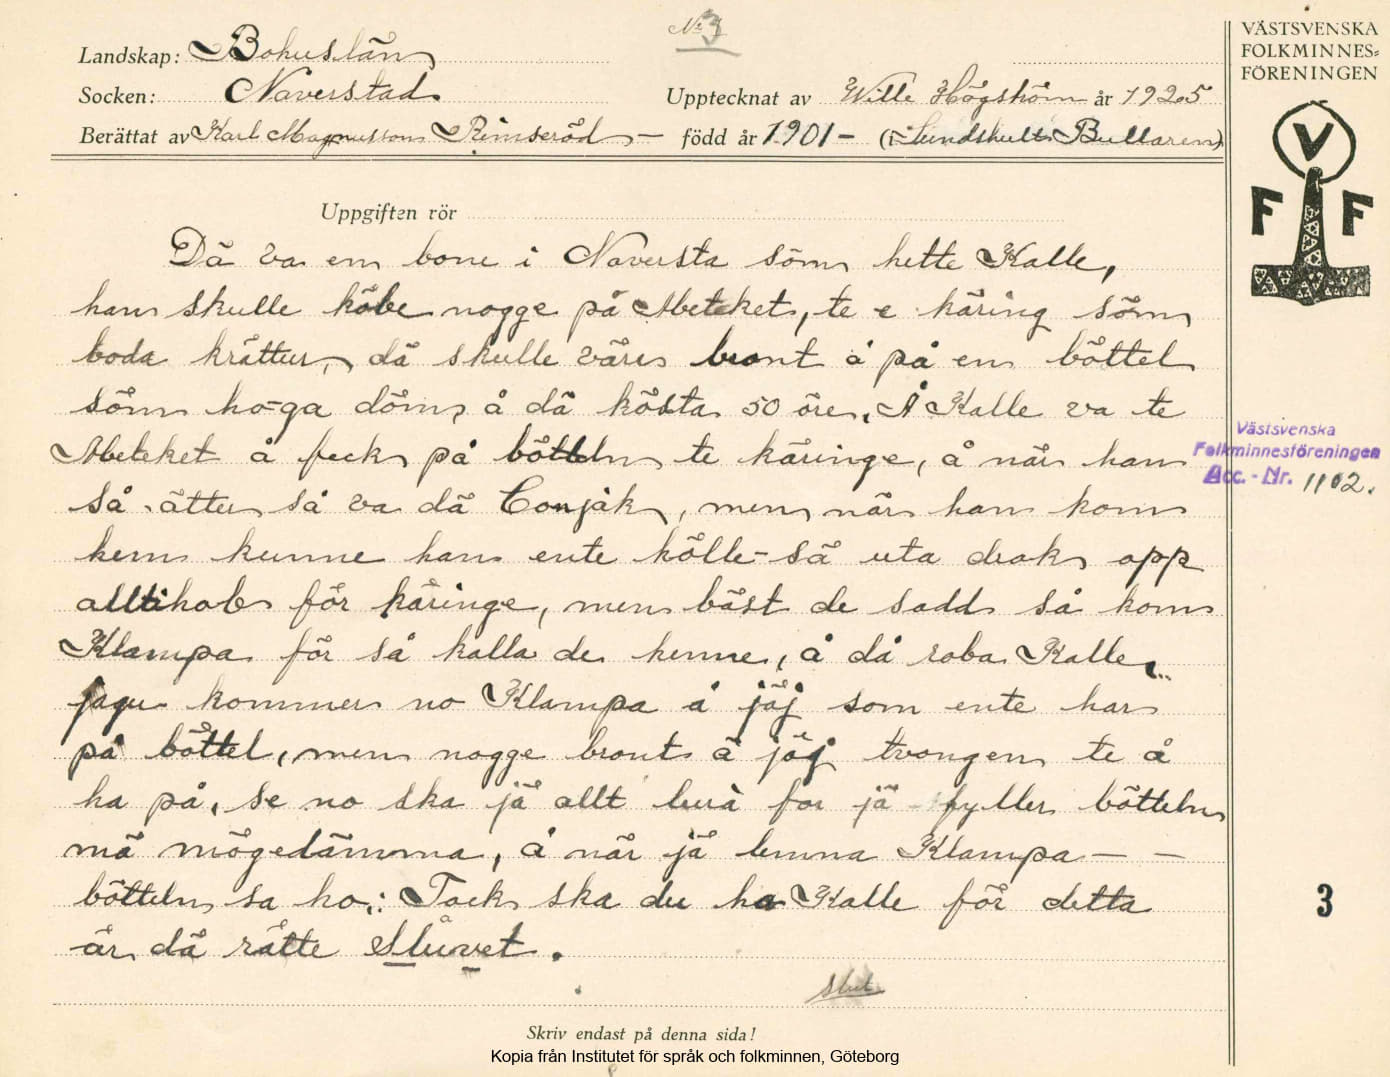 No 3
VÄSTSVENSKA
FOLKMINNES=
FÖRENINGEN
Landskap: Bohuslän
Socken: Naverstad
Upptecknat av Wille Högström år 1925
Berättat av Karl Magnusson Rimseröd — född år 1901 — (i Bullaren)
V
F F
Uppgiften rör
Dä va en bone i Naversta söm hette Kalle,
han skulle köbe nogge på Abeteket, te e käring söm
boda kråttur, dä skulle väre bront å på en böttel
söm ho ga döm, å dä kösta 50 öre, Å Kalle va te
Abeteket å feck på bötteln te käringe, å när han
så ätter så va dä Conjak, men när han kom
hem kunne han ente hölle sä uta drak opp
alltihob för käringe, men bäst de sadd så kom
Klampa för så kalla de henne, å då roba Kalle,
jagu kommer no Klampa å jäj som ente har
på böttel, men nogge bront ä jäj tvongen te å
ha på, se no ska jä allt lura for jä fyller bötteln
mä mögedämma, å när jä lemna Klampa — —
bötteln sa ho: Tack ska du ha Kalle för detta
är dä rätte Slåvet.
slut
Västsvenska
Folkminnesföreningen
Acc. - Nr. 1102.
3
Skriv endast på denna sida!
Kopia från Institutet för språk och folkminnen, Göteborg